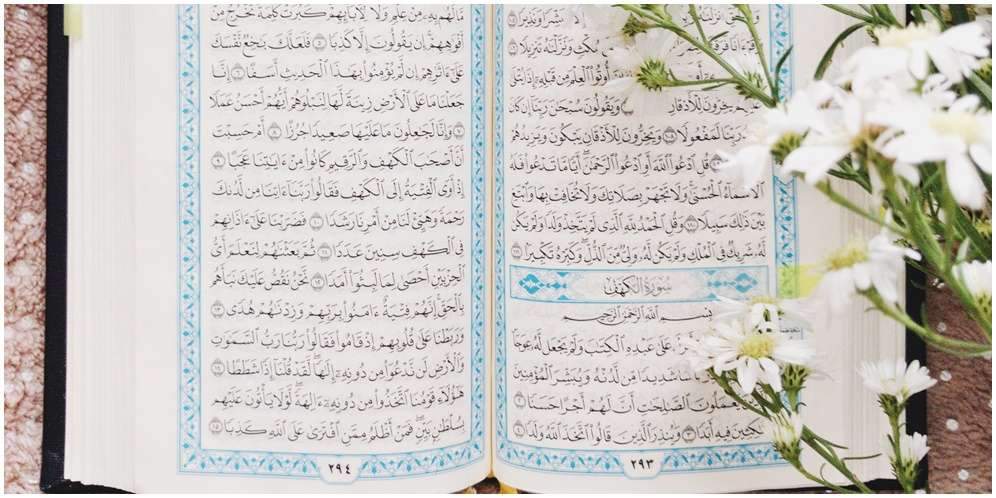 إِلَّا مُبَشِّرًا وَنَذِيرًا ١٠٥
وَقُرْءَانًا فَرَقْنَٰهُ مُكْثٍ وَنَزَّلْنَٰهُ تَنزِيلًا ١٠٦
أُوتُوا۟ ٱلْعِلْمَ مِن قَبْلِهِۦٓ إِذَا يُتْلَىٰ
عَلَيْهِمْ يَخِرُّونَ لِلْأَذْقَانِ وَيَقُولُونَ سُبْحَٰنَ رَبِّنَآ إِن كَانَ
رَبِّنَا لَمَفْعُولًا ١٠٨ وَيَخِرُّونَ لِلْأَذْقَانِ يَبْكُونَ وَيَزِيدُهُمْ
قُلِ ٱدْعُوا۟ ٱللَّهَ أَوِ ٱدْعُوا۟ ٱلرَّحْمَٰنَ أَيًّا مَّا تَدْعُوا۟ فَلَهُ
ٱلْأَسْمَآءُ ٱلْحُسْنَىٰ وَلَا تَجْهَرْ بِصَلَاتِكَ وَلَا تُخَافِتْ بِهَا وَٱبْتَغِ
بَيْنَ ذَٰلِكَ سَبِيلًا ١١٠ وَقُلِ ٱلْحَمْدُ لِلَّهِ ٱلَّذِى لَمْ يَتَّخِذْ وَلَدًا وَلَمْ يَكُن
لَّهُۥ شَرِيكٌ فِى ٱلْمُلْكِ وَلَمْ يَكُن لَّهُۥ وَلِىٌّ مِّنَ ٱلذُّلِّ وَكَبِّرْهُ تَكْبِيرًۢا ١١١
سُورَةُ الكَهْفِ
بِسْمِ ٱللَّهِ ٱلرَّحْمَٰنِ ٱلرَّحِيمِ
عَلَىٰ عَبْدِهِ ٱلْكِتَٰبَ وَلَمْ يَجْعَل لَّهُۥ عِوَجَا
شَدِيدًا مِّن لَّدُنْهُ وَيُبَشِّرَ ٱلْمُؤْمِنِينَ
يَعْمَلُونَ ٱلصَّٰلِحَٰتِ أَنَّ لَهُمْ أَجْرًا حَسَنًا ٢
مَّٰكِثِينَ فِيهِ أَبَدًا ٣ وَيُنذِرَ ٱلَّذِينَ قَالُوا۟ ٱتَّخَذَ ٱللَّهُ وَلَدًا ٤
٢٩٣
مَّا لَهُم بِهِۦ مِنْ عِلْمٍ وَلَا لِـَٔابَآئِهِمْ كَبُرَتْ كَلِمَةً تَخْرُجُ مِنْ
أَفْوَٰهِهِمْ إِن يَقُولُونَ إِلَّا كَذِبًا ٥ فَلَعَلَّكَ بَٰخِعٌ نَّفْسَكَ
عَلَىٰٓ ءَاثَٰرِهِمْ إِن لَّمْ يُؤْمِنُوا۟ بِهَٰذَا ٱلْحَدِيثِ أَسَفًا ٦ إِنَّا
جَعَلْنَا مَا عَلَى ٱلْأَرْضِ زِينَةً لَّهَا لِنَبْلُوَهُمْ أَيُّهُمْ أَحْسَنُ عَمَلًا
٧ وَإِنَّا لَجَٰعِلُونَ مَا عَلَيْهَا صَعِيدًا جُرُزًا ٨ أَمْ حَسِبْتَ
أَنَّ أَصْحَٰبَ ٱلْكَهْفِ وَٱلرَّقِيمِ كَانُوا۟ مِنْ ءَايَٰتِنَا عَجَبًا ٩
إِذْ أَوَى ٱلْفِتْيَةُ إِلَى ٱلْكَهْفِ فَقَالُوا۟ رَبَّنَآ ءَاتِنَا مِن لَّدُنكَ
رَحْمَةً وَهَيِّئْ لَنَا مِنْ أَمْرِنَا رَشَدًا ١٠ فَضَرَبْنَا عَلَىٰٓ ءَاذَانِهِمْ
فِى ٱلْكَهْفِ سِنِينَ عَدَدًا ١١ ثُمَّ بَعَثْنَٰهُمْ لِنَعْلَمَ أَىُّ
ٱلْحِزْبَيْنِ أَحْصَىٰ لِمَا لَبِثُوٓا۟ أَمَدًا ١٢ نَّحْنُ نَقُصُّ عَلَيْكَ نَبَأَهُم
بِٱلْحَقِّ إِنَّهُمْ فِتْيَةٌ ءَامَنُوا۟ بِرَبِّهِمْ وَزِدْنَٰهُمْ هُدًى ١٣
وَرَبَطْنَا عَلَىٰ قُلُوبِهِمْ إِذْ قَامُوا۟ فَقَالُوا۟ رَبُّنَا رَبُّ ٱلسَّمَٰوَٰتِ
وَٱلْأَرْضِ لَن نَّدْعُوَا۟ مِن دُونِهِۦٓ إِلَٰهًا لَّقَدْ قُلْنَآ إِذًا شَطَطًا ١٤
هَٰٓؤُلَآءِ قَوْمُنَا ٱتَّخَذُوا۟ مِن دُونِهِۦٓ ءَالِهَةً لَّوْلَا يَأْتُونَ عَلَيْهِم
بِسُلْطَٰنٍۭ بَيِّنٍ فَمَنْ أَظْلَمُ مِمَّنِ ٱفْتَرَىٰ عَلَى ٱللَّهِ كَذِبًا ١٥
٢٩٤